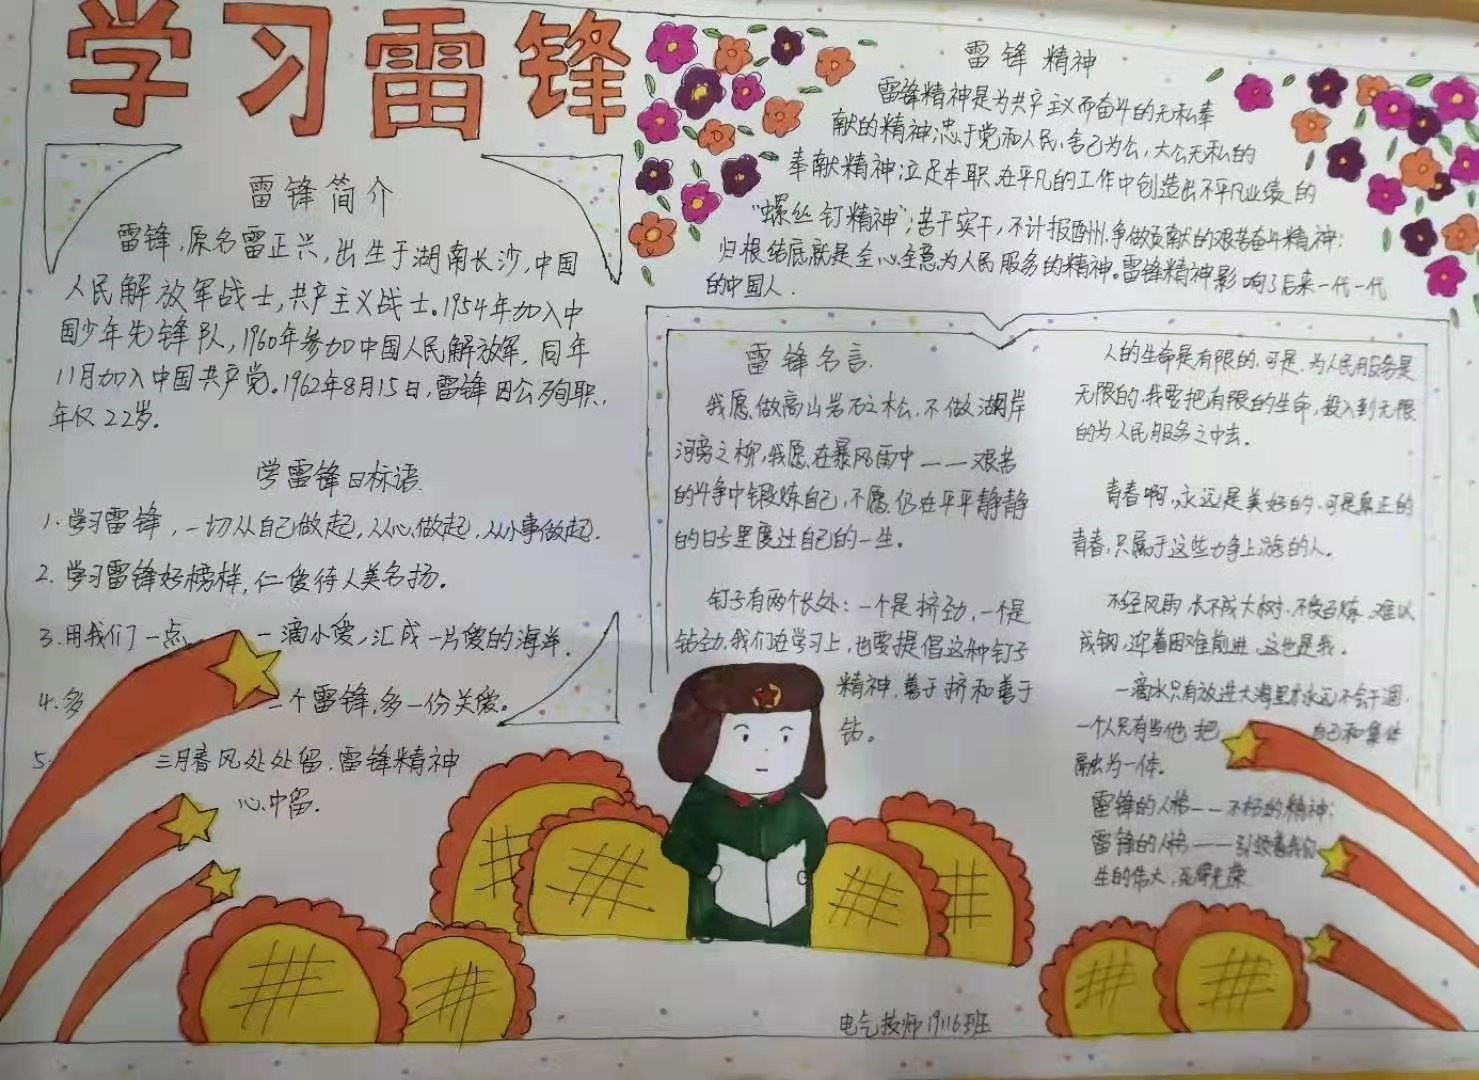 学习雷锋
雷锋简介
雷锋，原名雷正兴，出生于湖南长沙，中国
人民解放军战士，共产主义战士。1954年加入中
国少年先锋队，1960年参加中国人民解放军，同年
11月加入中国共产党。1962年8月15日，雷锋因公殉职，
年仅22岁。
学雷锋日标语
1.学习雷锋，一切从自己做起，从心做起，从小事做起.
2.学习雷锋好榜样，仁爱待人美名扬。
3.用我们一点 一滴小爱，汇成一片爱的海洋.
4.多 一个雷锋，多一份关爱。
5. 三月春风处处留，雷锋精神
心中留.
雷锋精神
雷锋精神是为共产主义而奋斗的无私奉
献的精神；忠于党和人民、舍己为公，大公无私的
奉献精神；立足本职、在平凡的工作中创造出不平凡业绩的
“螺丝钉精神”；苦干实干，不计报酬，争做贡献的艰苦奋斗精神；
归根结底就是全心全意为人民服务的精神。雷锋精神影响了后来一代一代
的中国人.
雷锋名言.
我愿做高山岩石之松，不做湖岸
河旁之柳，我愿在暴风雨中——艰苦
的斗争中锻炼自己，不愿仍在平平静静
的日子里度过自己的一生。
钉子有两个长处：一个是挤劲，一个是
钻劲，我们在学习上，也要提倡这种钉子
精神，善于挤和善于
钻。
人的生命是有限的，可是，为人民服务是
无限的，我要把有限的生命，投入到无限
的为人民服务之中去。
青春啊，永远是美好的，可是真正的
青春，只属于这些力争上游的人。
不经风雨，长不成大树，不受百炼，难以
成钢，迎着困难前进，这也是我。
一滴水只有放进大海里才永远不会干涸，
一个人只有当他把 自己和集体
融为一体。
雷锋的人格——不朽的精神；
雷锋的人格——引领着我们
生的伟大，死得光荣
电气技师19116班